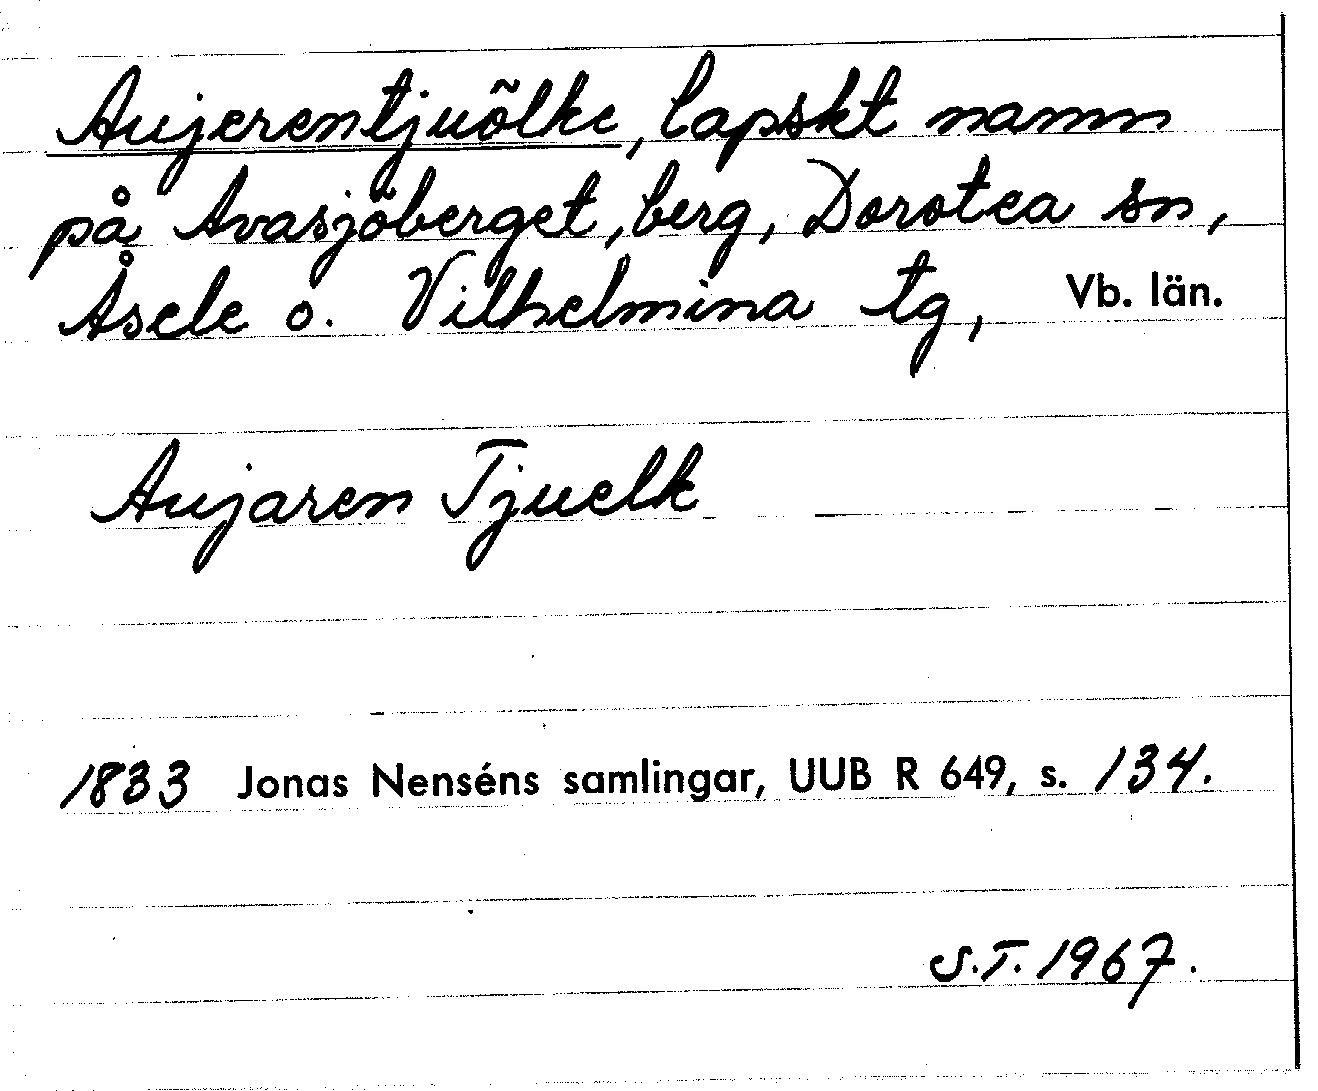 Aujerentjuõlke, lapskt namn
på Avasjöberget, berg, Dorotea sn,
Åsele o. Vilhelmina tg, Vb. län.
Aujaren Tjuelk
1833 Jonas Nenséns samlingar, UUB R 649, s. 134.
S.T. 1967.